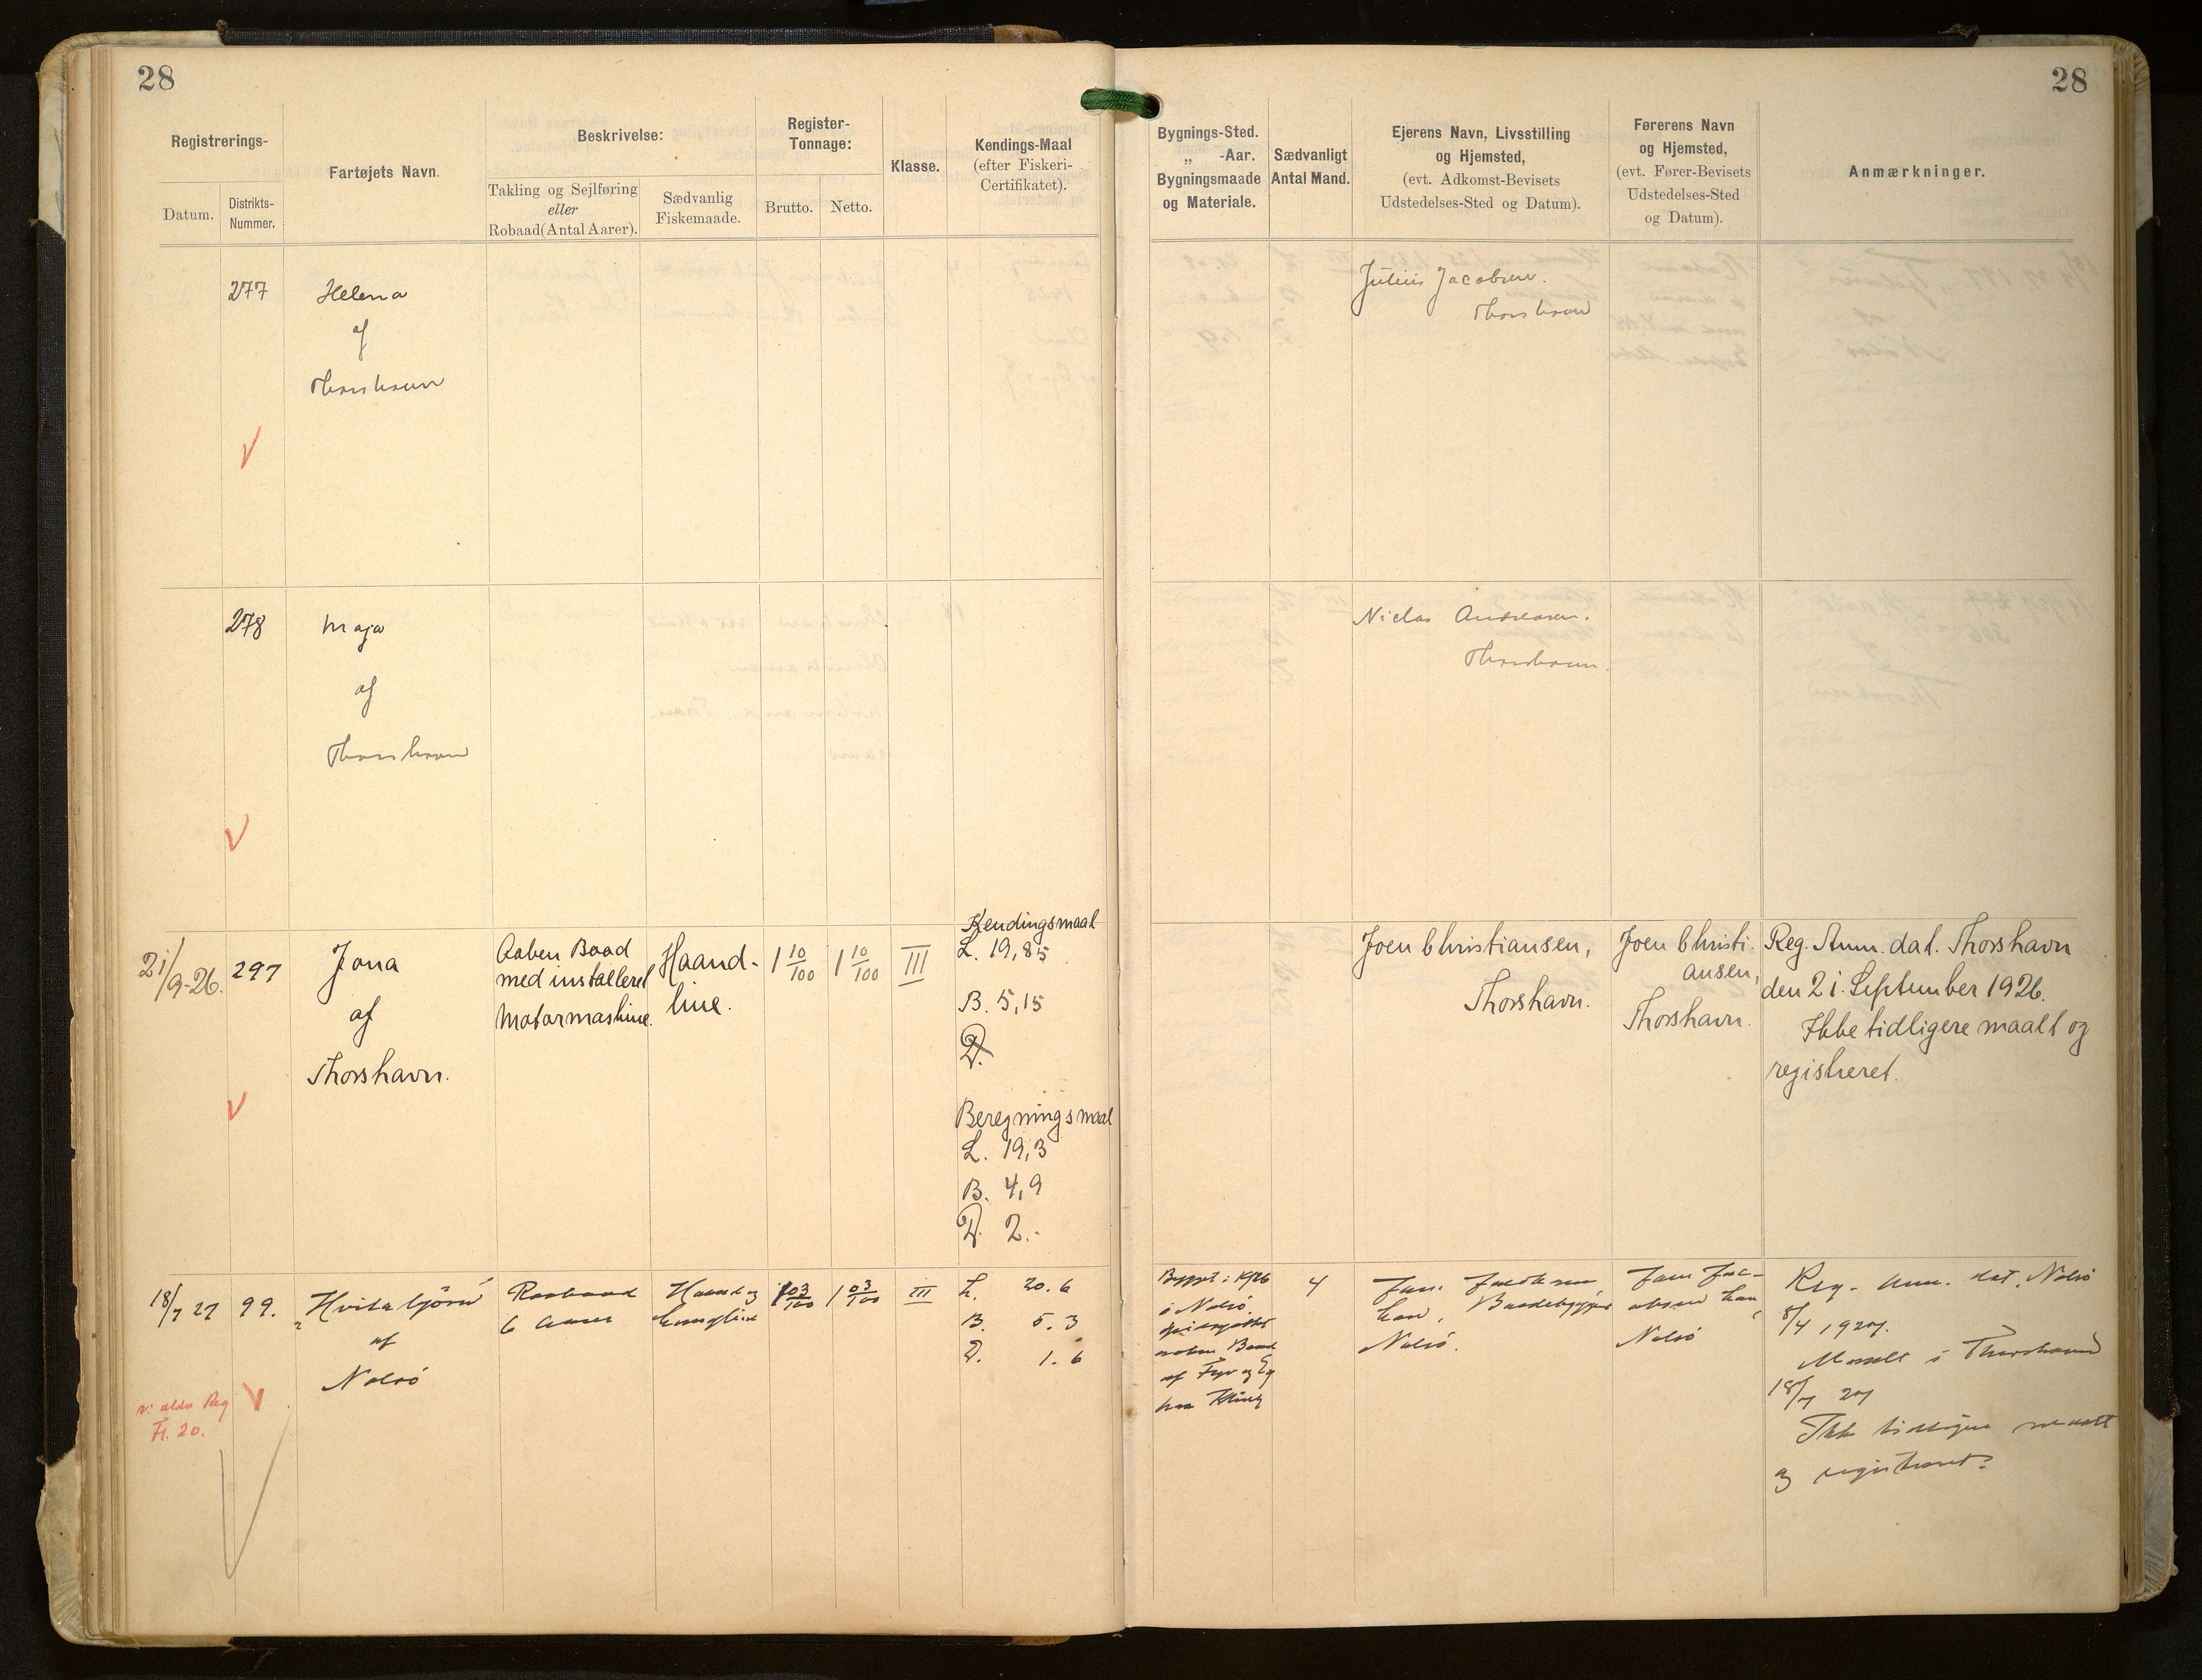 28
28
Registrerings-
Datum.
Distrikts-
Nummer.
Fartøjets Navn.
Beskrivelse:
Takling og Sejlføring
eller
Robaad (Antal Aarer).
Sædvanlig
Fiskemaade.
Register-
Tonnage:
Brutto.
Netto.
Klasse.
Kendings-Maal
(efter Fiskeri-
Certifikatet).
Bygnings-Sted.
„ -Aar.
Bygningsmaade
og Materiale.
Sædvanligt
Antal Mand.
Ejerens Navn, Livsstilling
og Hjemsted,
(evt. Adkomst-Bevisets
Udstedelses-Sted og Datum).
Førerens Navn
og Hjemsted,
(evt. Fører-Bevisets
Udstedelses-Sted
og Datum).
Anmærkninger.
277
Helena
af
Thorshavn
Julius Jacobsen.
Thorshavn
278
Maja
af
Thorshavn
Niclas Andreasen.
Thorshavn.
21/9-26.
297
Jona
af
Thorshavn.
Aaben Baad
med installeret
Motormaskine.
Haand-
line.
1 10/100
1 10/100
III
Kendingsmaal
L. 19,85
B. 5,15
D.
Beregningsmaal
L. 19,3
B. 4,9
D. 2.-
Joen Christiansen,
Thorshavn.
Joen Christi-
ansen,
Thorshavn.
Reg. Anm. dat. Thorshavn
den 21. September 1926.
Ikke tidligere maalt og
registreret.
18/7 27
99.
Hvitabjörn
af
Nolsö
Roabaad
6 Aarer
Haand og
Langline
1 03/100
1 03/100
III
L. 20.6
B. 5.3
D. 1.6
Bygget i 1926
i Nolsö.
aaben Baad
af Fyr og Eg
paa Klink
4
Baadebygger
Nolsö.
Nolsö
Reg. Anm. dat. Nolsö
8/4 1927.
Maalt i Thorshavn
18/7 27
Ikke tidligere maalt
og registreret.
v: ældr Reg
Fl. 20.